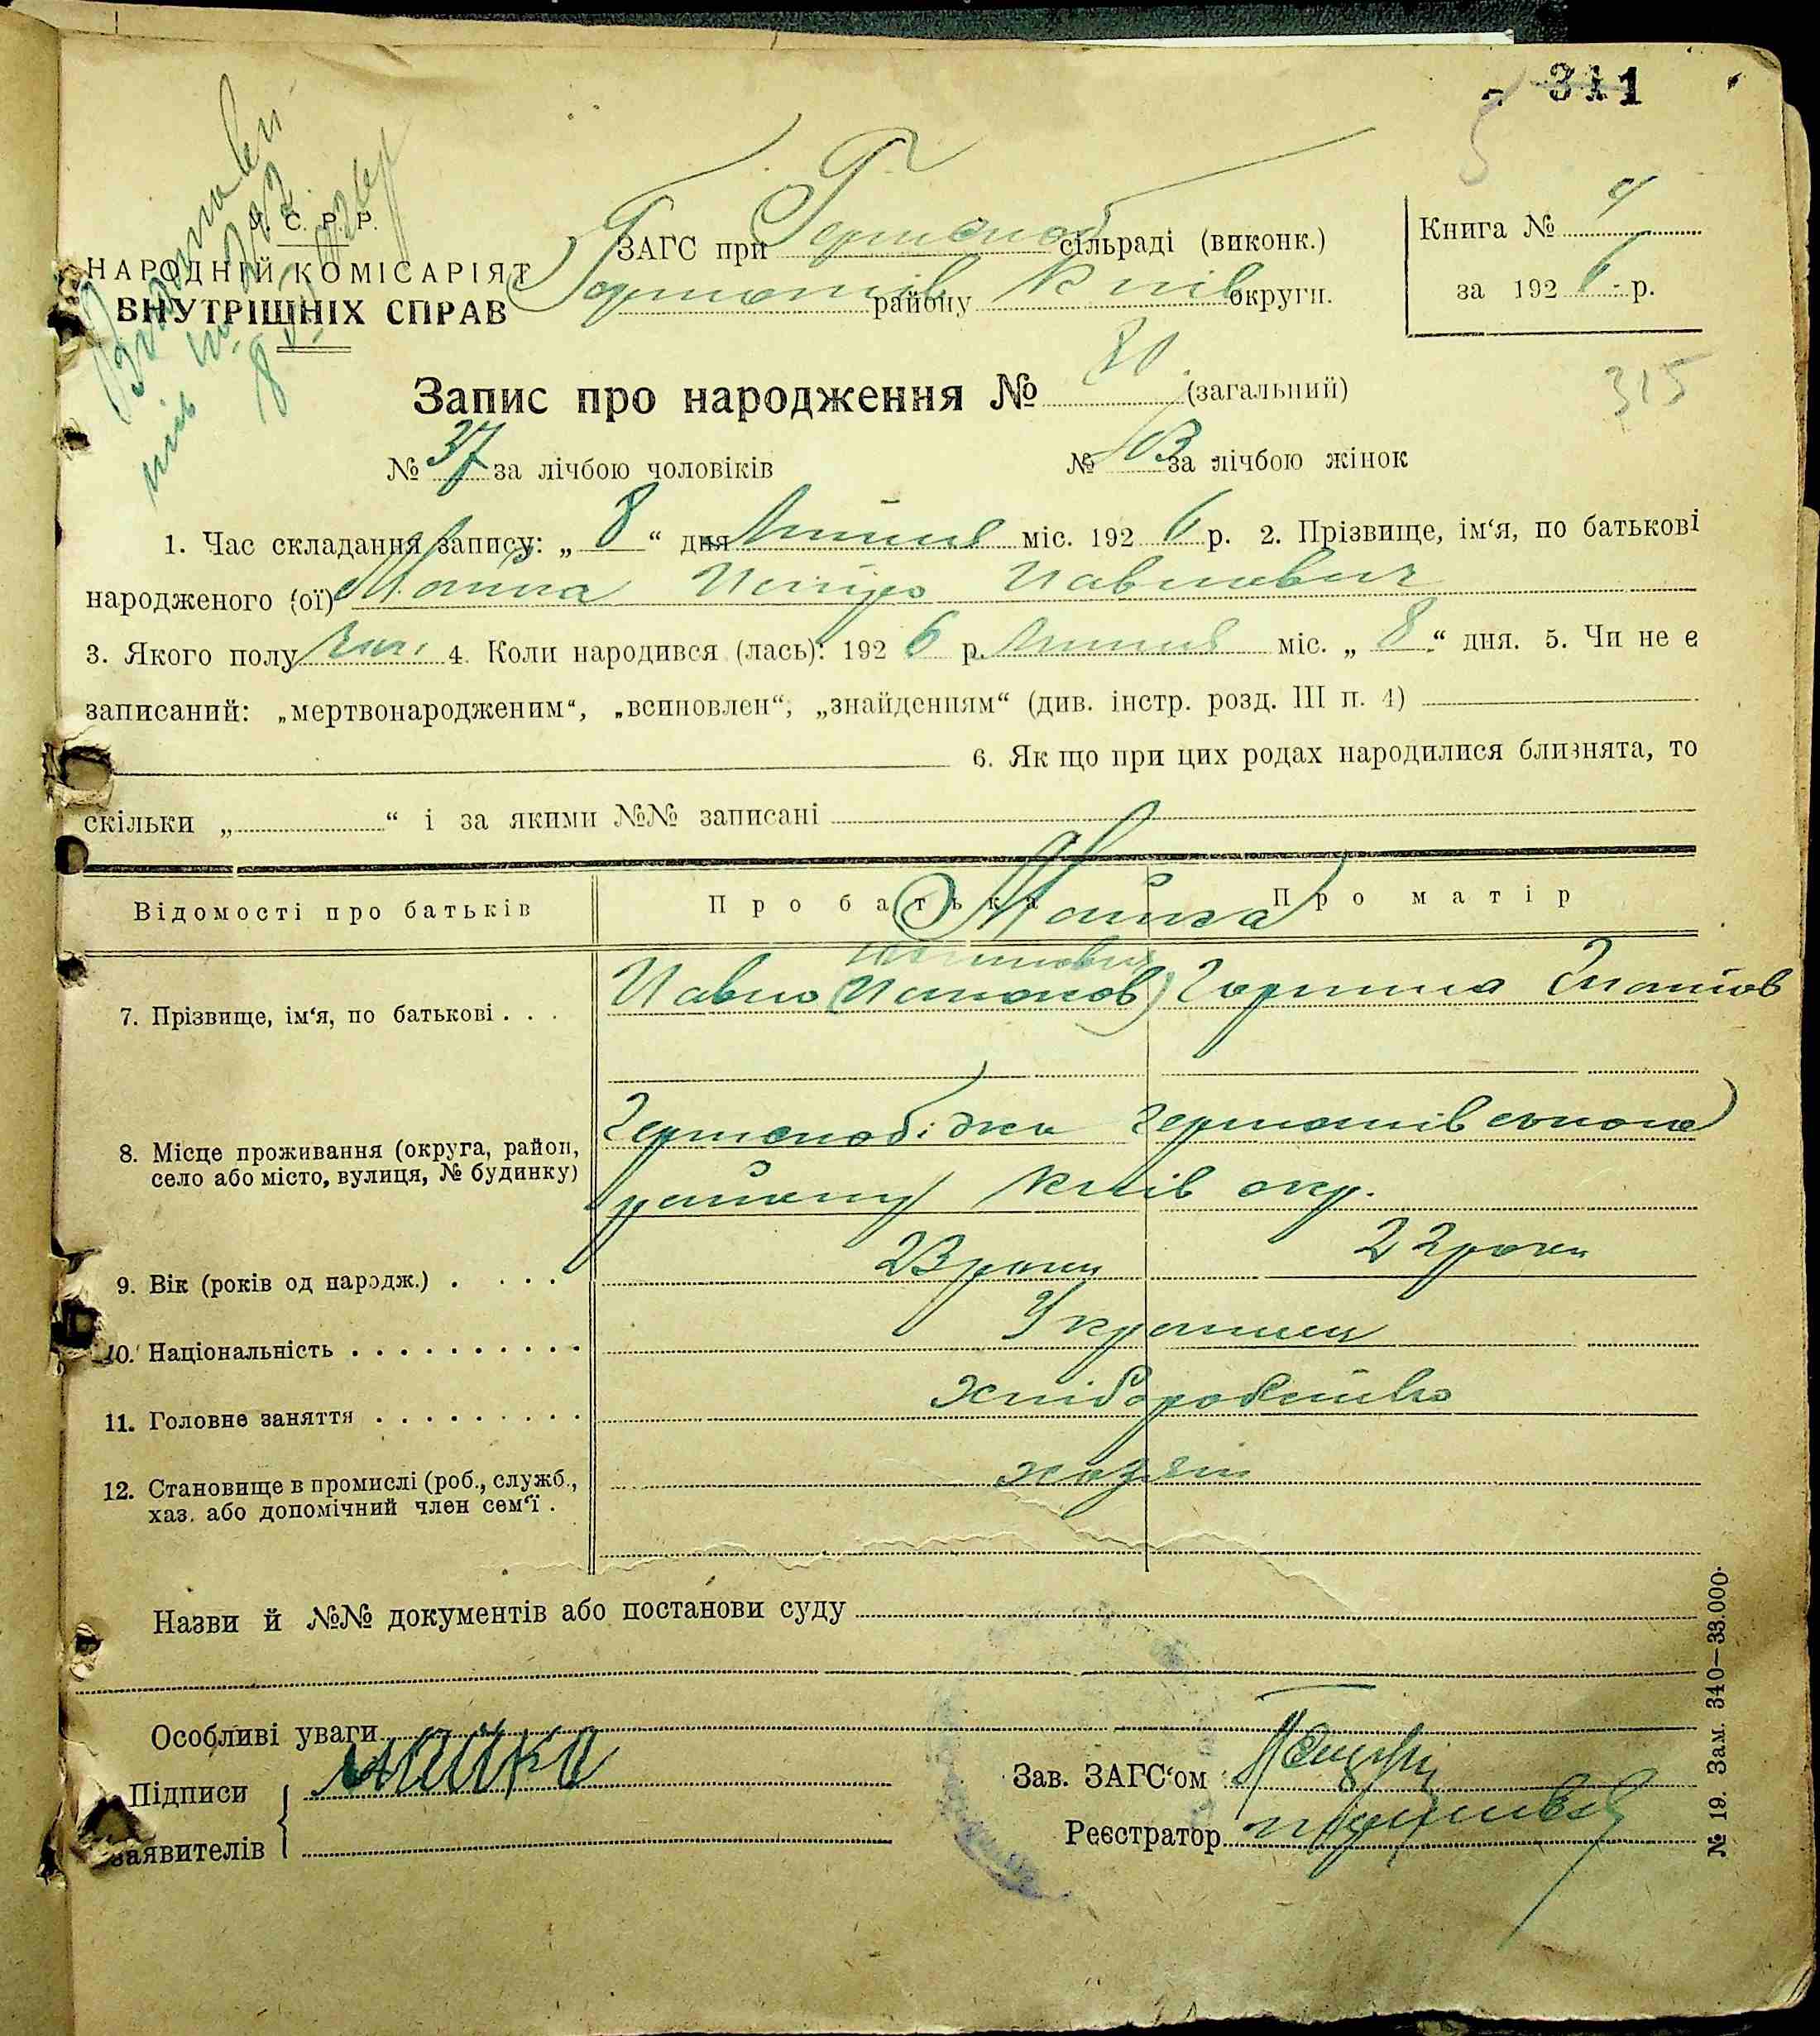 311
5
У. С. Р. Р.
НАРОДНІЙ КОМІСАРІЯТ
ВНУТРІШНІХ СПРАВ
ЗАГС при сільраді (виконк.)
району Київ округи.
Книга № 4
за 1926 р.
Запис про народження № 80 (загальний)
315
№ 37 за лічбою чоловіків № 43 за лічбою жінок
1. Час складання запису: „ 8 “ дня Липня міс. 1926 р. 2. Прізвище, ім‘я, по батькові
народженого (ої) Павлович
3. Якого полу чол. 4. Коли народився (лась): 1926 р. Липня міс. „ 8 “ дня. 5. Чи не є
записаний: „мертвонародженим“, „всиновлен“, „знайденням“ (див. інстр. розд. III п. 4)
6. Як що при цих родах народилися близнята, то
скільки „ “ і за якими №№ записані
Відомості про батьків Про батька Про матір
Майка
7. Прізвище, ім‘я, по батькові . . . Павло Горпина Гнатов
8. Місце проживання (округа, район,
село або місто, вулиця, № будинку)
району Київ окр.
9. Вік (років од народж.) . . . . . 23 роки 22 роки
10. Національність . . . . . . . . . . Українці
11. Головне заняття . . . . . . . . . хліборобство
12. Становище в промислі (роб., служб.,
хаз. або допомічний член сем‘ї . хазяїн
Назви й №№ документів або постанови суду
Особливі уваги
Підписи
заявителів
майка
Зав. ЗАГС‘ом
Реєстратор
№ 19. Зам. 340—33.000.